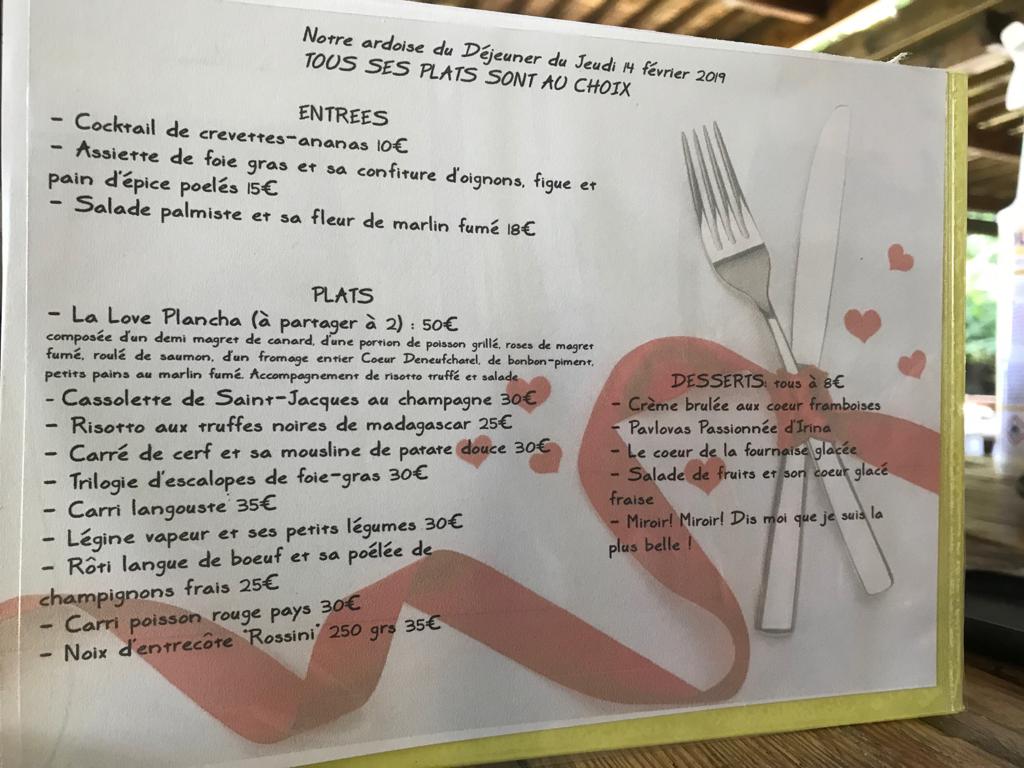 Notre ardoise du Déjeuner du Jeudi 14 février 2019
TOUS SES PLATS SONT AU CHOIX
ENTREES
- Cocktail de crevettes-ananas 10€
- Assiette de foie gras et sa confiture d'oignons, figue et
pain d'épice poelés 15€
- Salade palmiste et sa fleur de marlin fumé 18€
PLATS
- La Love Plancha (à partager à 2) : 50€
composée d'un demi magret de canard, d'une portion de poisson grillé, roses de magret
fumé, roulé de saumon, d'un fromage entier Coeur Deneufchatel, de bonbon-piment,
petits pains au marlin fumé. Accompagnement de risotto truffé et salade
- Cassolette de Saint-Jacques au champagne 30€
- Risotto aux truffes noires de madagascar 25€
- Carré de cerf et sa mousline de patate douce 30€
- Trilogie d'escalopes de foie-gras 30€
- Carri langouste 35€
- Légine vapeur et ses petits légumes 30€
- Rôti langue de boeuf et sa poélée de
champignons frais 25€
- Carri poisson rouge pays 30€
- Noix d'entrecôte "Rossini" 250 grs 35€
DESSERTS: tous à 8€
- Crème brulée aux coeur framboises
- Pavlovas Passionnée d'Irina
- Le coeur de la fournaise glacée
- Salade de fruits et son coeur glacé
fraise
- Miroir! Miroir! Dis moi que je suis la
plus belle !